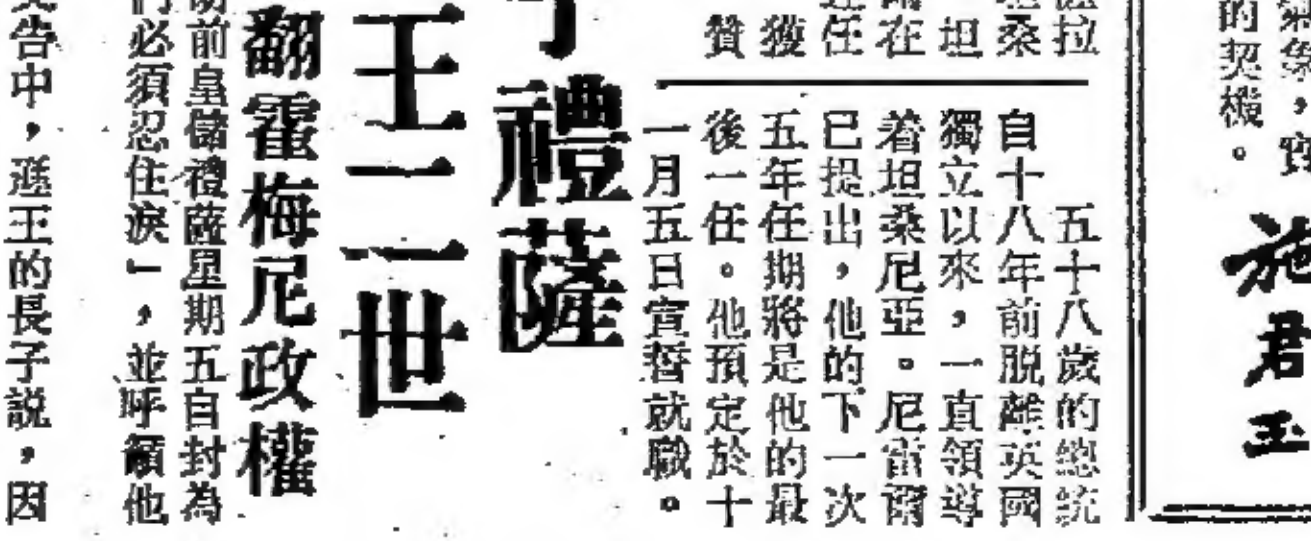 的契機。
施君玉
拉
桑
坦
在
任
獲
贊
五十八歲的總統
自十八年前脱離英國
獨立以來，一直領導
着坦桑尼亞。尼雷爾
已提出，他的下一次
五年任期將是他的最
後一任。他預定於十
一月五日宣誓就職。
禮薩
王二世
翻霍梅尼政權
前皇儲禮薩星期五自封為
們必須忍住淚」，並呼籲他
告中，遜王的長子説，因